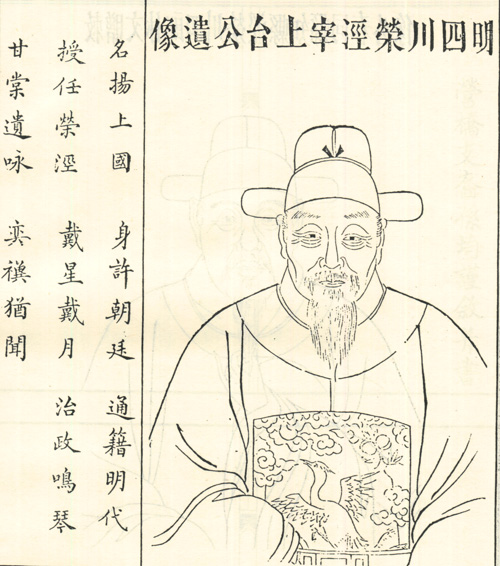 明四川榮涇宰上台公遺像
名揚上國 身許朝廷 通籍明代
授任榮涇 戴星戴月 治政鳴琴
甘棠遺咏 奕禩猶聞